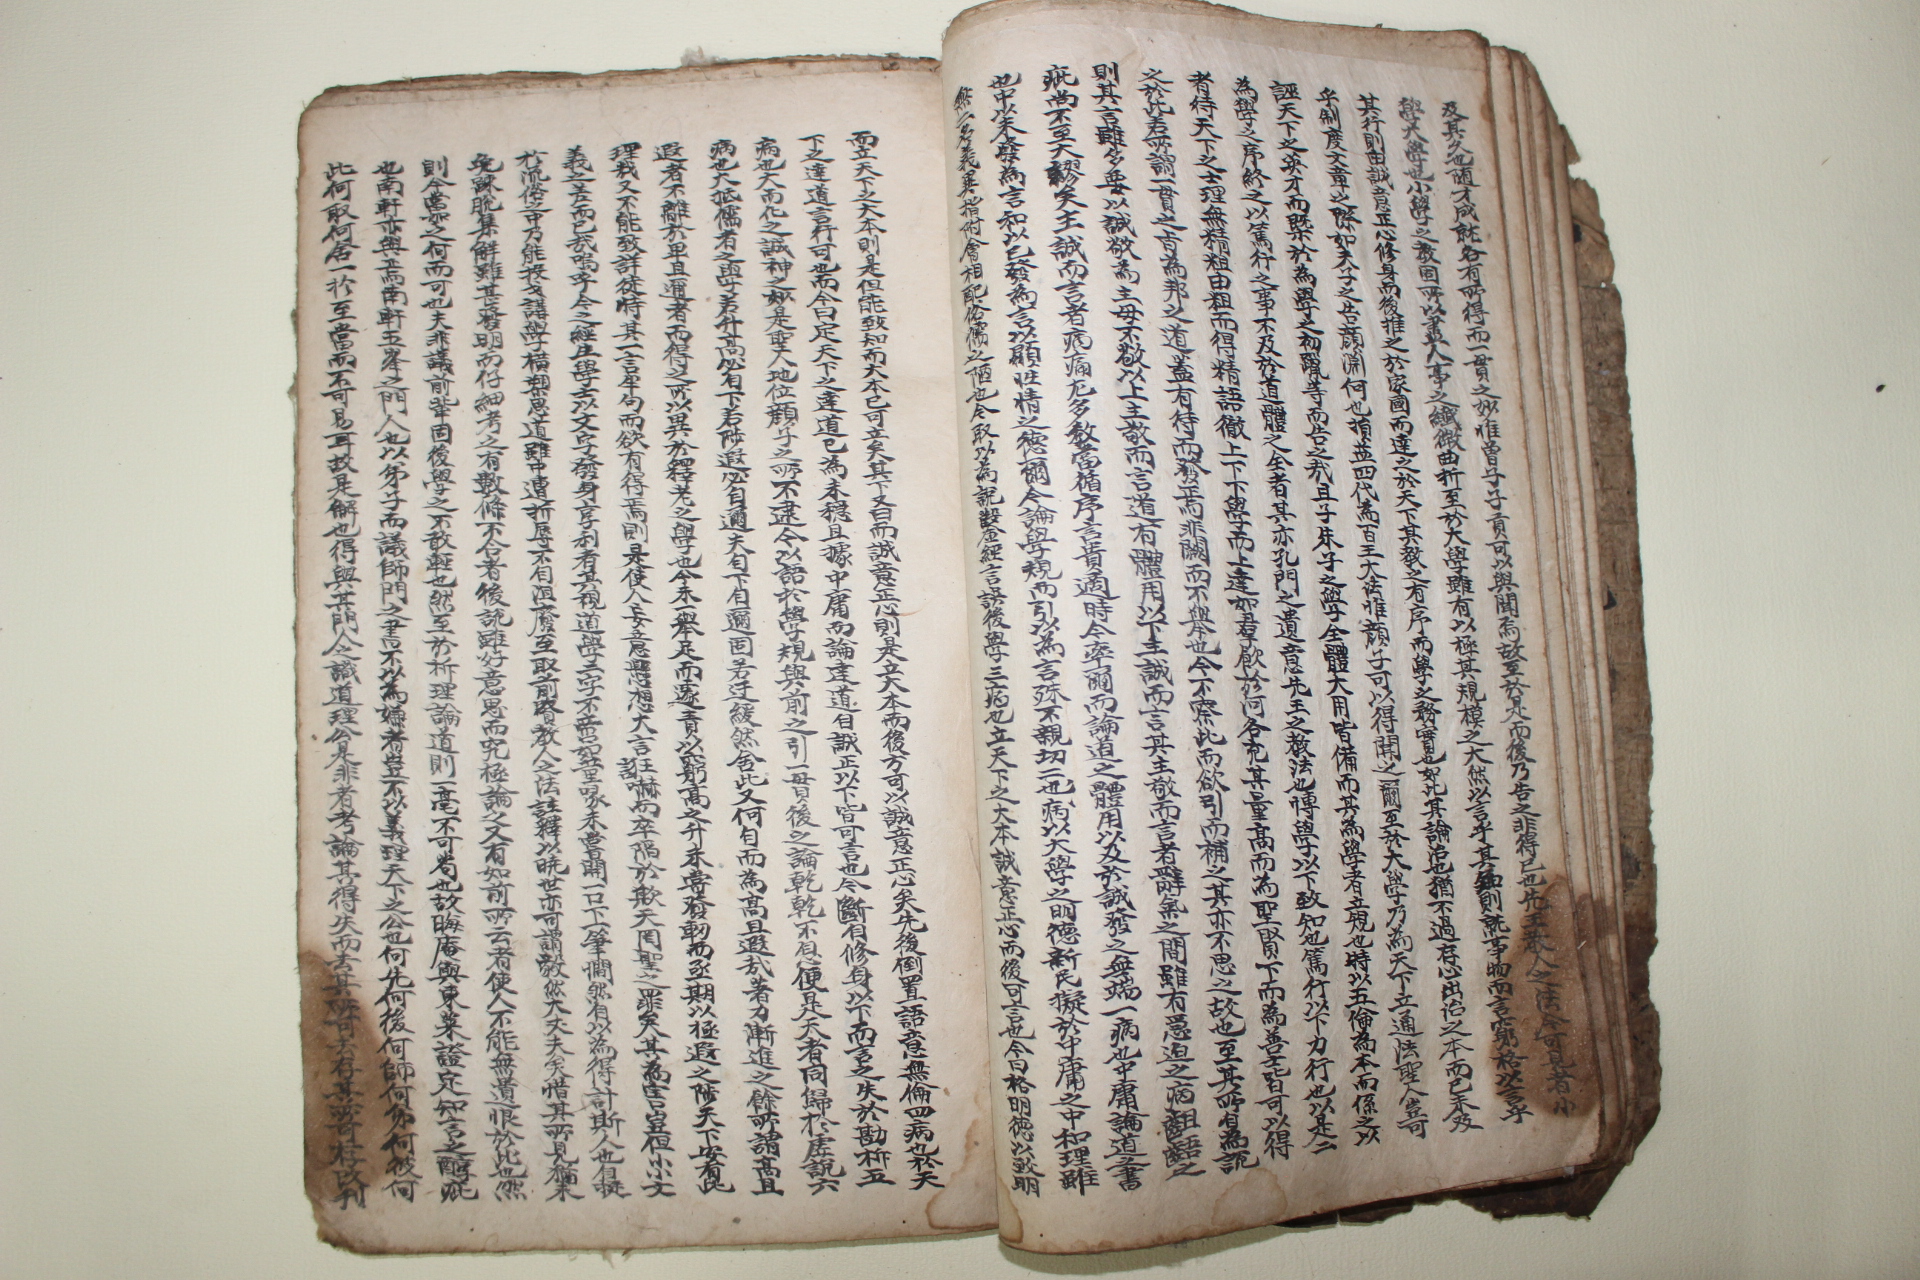 及其久也随才成就各有所得而一貫之妙惟曾子子貢可以與聞焉故至於是而後乃告之非得已也先王教人之法今可見者小
學大學也小學之教固所以盡人事之纖微曲折至於大學雖有以極其規模之大然以言乎其知則就事物而言窮格以言乎
其行則由誠意正心修身而後推之於家國而達之於天下其教之有序而學之務實也如此其論治也猶不過存心出治之本而已未及
乎制度文章之際如夫子之告顔淵何也損益四代為百王大法惟顔子可以得聞之爾至於大學乃為天下立通法聖人豈可
誣天下之英才而槩於為學之初躐等而告之哉且子朱子之學全體大用皆備而其為學者立規也時以五倫為本而係之以
為學之序終之以篤行之事不及於道體之全者其亦孔門之遺意先王之教法也博學以下致知也篤行以下力行也以是二
者待天下之士理無精粗由粗而得精語徹上下下學而上達如羣飲於河各充其量高而為聖賢下而為善士皆可以得
之於此若所謂一貫之旨為邦之道蓋有待而發焉非闕而不與也今不察此而欲引而補之其亦不思之故也至其所自為說
則其言雖多要以誠敬為主毋不敬以上主敬而言道有體用以下主誠而言其主敬而言者辭氣之間雖有急迫之病齟齬之
疵尚不至大繆矣主誠而言者病痛尤多教當循序言貴適時今率爾而論道之體用以及於誠發之無端一病也中庸論道之書
也中以未發為言和以已發為言以顯性情之德爾今論學規而引以為言殊不親切二也病以大學之明德新民擬於中庸之中和理雖
無二名義異指附會相配俗儒之陋也今取以為說鑿金經言誤後學三病也立天下之大本誠意正心而後可言也今曰格明德以致明
而立天下之大本則是但能致知而大本已可立矣其下又曰而誠意正心則是立大本而後方可以誠意正心矣先後倒置語意無倫四病也於天
下之達道言行可也而今曰定天下之達道已為未穩且據中庸而論達道自誠正以下皆可言也今斷自修身以下而言之失於勘析五
病也大而化之誠神之妙是聖人地位顔子之所不逮今以語於學規與前之引一貫後之論乾乾不息便是天者同歸於虛說六
病也大抵儒者之學若升高必自下若陟遐必自邇夫自下自邇固若迂緩然舍此又何自而為高且遐哉著力漸進之餘所謂高且
遐者不離於卑且邇者而得之所以異於釋老之學也今未一舉足而遽責以窮高之升未嘗發軔而亟期以極遐之陟天下安有此
理哉又不能致詳徒恃其一言半句而欲有得焉則是使人妄意懸想大言誑嚇而卒陷於欺天罔聖之罪矣其為害豈但小小文
義之差而已哉嗚呼今之經生學士以文字發身享利者其視道學二字不啻如堇喙未嘗開一口下一筆憪然自以為得計斯人也自拔
於流俗之中乃能投戈講學橫槊思道雖中遭折辱不自沮廢至取前賢教人之法註釋以曉世亦可謂毅然大丈夫矣惜其所見猶未
免踈脫集解雖甚發明而仔細考之有數條不合者後說雖好意思而究極論之又有如前所云者使人不能無遺恨於此也然
則今當如之何而可也夫非議前輩固後學之不敢輕也然至於析理論道則一毫不可苟也故晦庵與東萊證定知言之醇疵
也南軒亦與焉南軒五峯之門人也以弟子而議師門之書不以為嫌者豈不以義理天下之公也何先何後何師何弟何彼何
此何取何舍一於至當而不可易耳故是解也得與其門人之識道理公是非者考論其得失而去其所可去存其所可存改刊